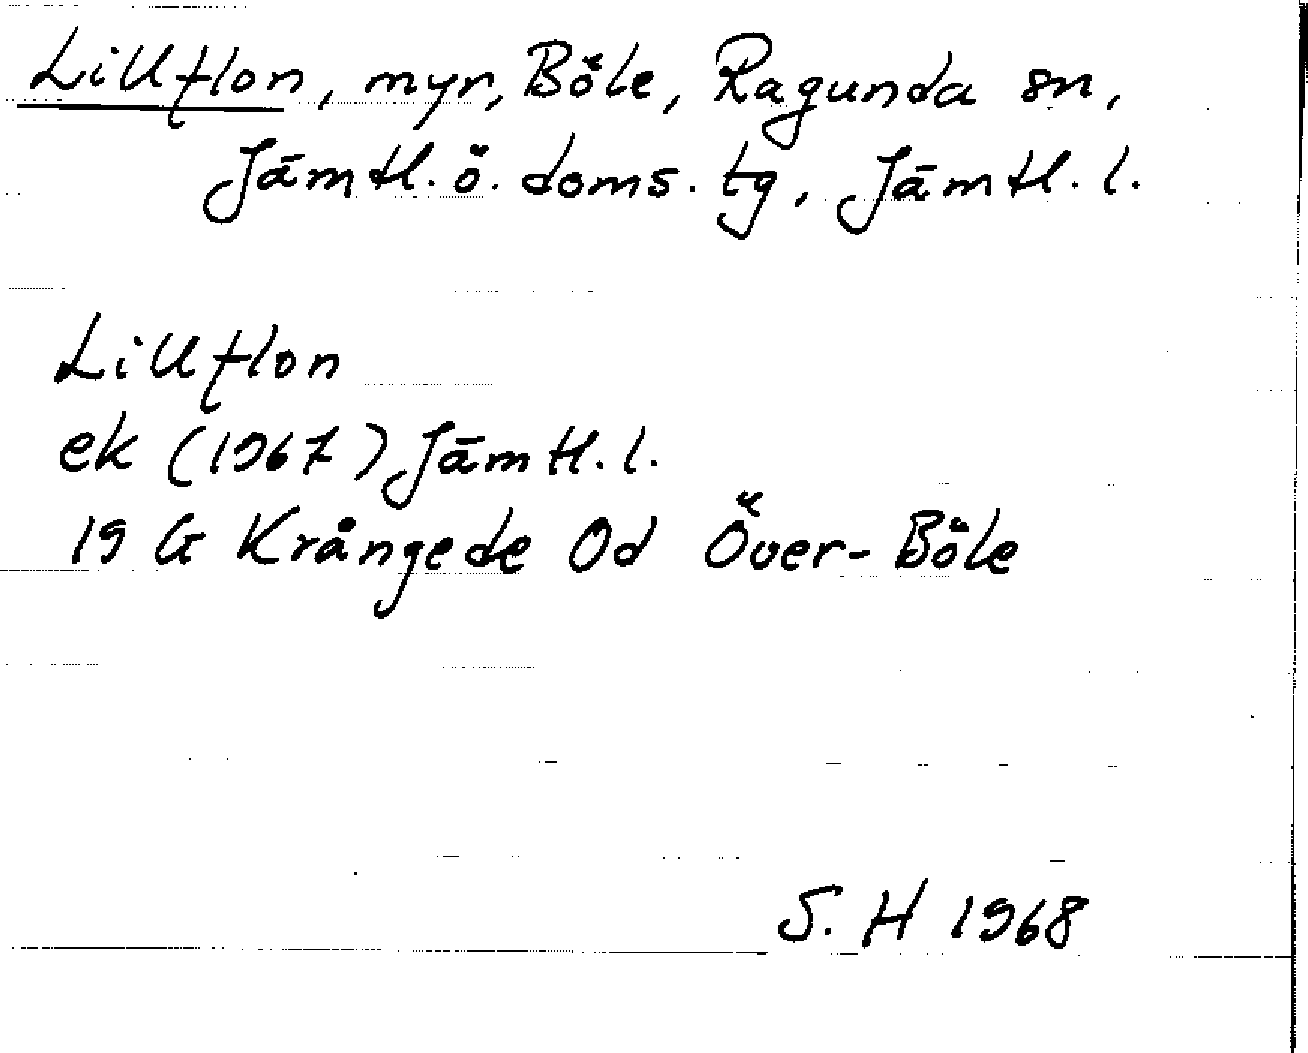 Lillflon, myr, Böle, Ragunda sn,
Jämtl. ö. doms. tg, Jämtl. l.
Lillflon
ek (1967) Jämtl. l.
19 G Krångede 0d Över-Böle
S. H 1968